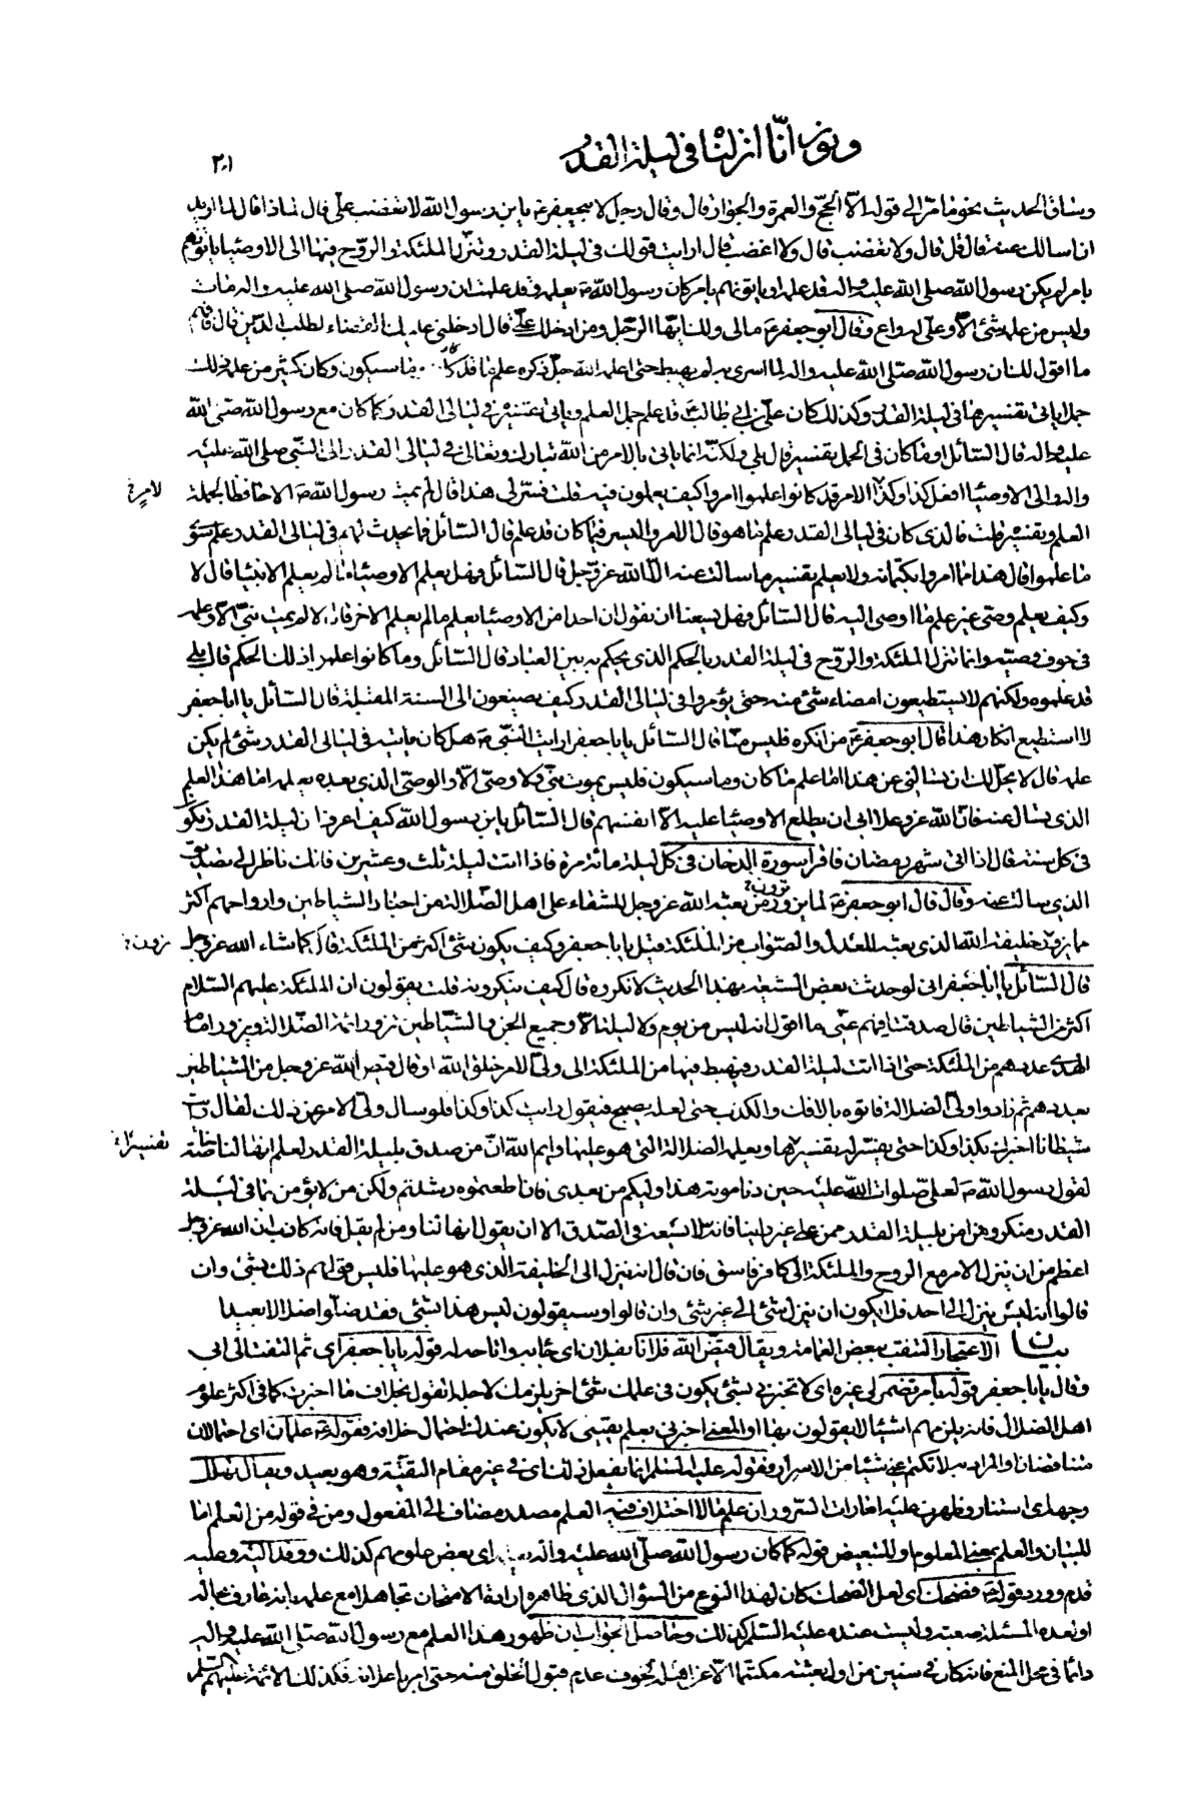 ونور انّا انزلناه في ليلة القدر
٢٠١
وساق الحديث نحو ما مرّ الى قوله الّا الحجّ والعمرة والجوار قال وقال رجل لابيجعفر ع يا بن رسول الله لا تغضب علىّ قال لماذا قال لما اريد
ان اسالك عنه قال قل قال ولا تغضب قال ولا اغضب قال ارايت قولك في ليلة القدر وتنزل الملئكة والروح فيها الى الاوصياء ياتونهم
بامر لم يكن رسول الله صلى الله عليه واله قد علمه او ياتونهم بامر كان رسول الله ص يعلمه وقد علمت ان رسول الله صلى الله عليه واله مات
وليس من علمه شئ الّا وعلىّ له واع وقال ابو جعفر ع مالى ولك ايها الرّجل ومن ادخلك علىّ قال ادخلنى عليك القضاء لطلب الدّين قال فافهم
ما اقول لك ان رسول الله صلّى الله عليه واله لما اسرى به لم يهبط حتى اعلمه الله جلّ ذكره علم ما قد كان وما سيكون وكان كثير من علمه ذلك
جملا ياتى تفسيرها في ليلة القدر وكذلك كان علىّ بن ابى طالب ع قد علم جمل العلم وياتى تفسيره في ليالى القدر كما كان مع رسول الله صلى الله
عليه واله قال السّائل اوما كان في الجمل تفسير قال بلى ولكنّه انما ياتى بالامر من الله تبارك وتعالى في ليالى القدر الى النّبي صلى الله عليه
واله والى الاوصياء افعل كذا وكذا الامر قد كانوا علموا امروا كيف يعملون فيه قلت فسّر لى هذا قال لم يمت رسول الله ص الا حافظا لجملة
لامرٍ؟
العلم وتفسيره قلت فالذى كان في ليالى القدر علم ما هو قال الامر واليسر فيما كان قد علم قال السّائل فما يحدث لهم في ليالى القدر علم سوى
ما علموا قال هذا مما امروا بكتمانه ولا يعلم تفسير ما سالت عنه الّا الله عزّ وجل قال السّائل فهل يعلم الاوصياء ما لم يعلم الانبياء قال لا
وكيف يعلم وصىّ غير علم ما اوصى اليه قال السّائل فهل يسعنا ان نقول ان احدا من الاوصياء يعلم ما لم يعلم الاخر قال لا لم يمت نبىّ الّا وعلمه
في جوف وصيّه وانما تنزل الملئكة والروح في ليلة القدر بالحكم الذى يحكم به بين العباد قال السّائل وما كانوا علموا ذلك الحكم قال بلى
قد علموه ولكنهم لا يستطيعون امضاء شئ منه حتى يؤمروا في ليالى القدر كيف يصنعون الى السنة المقبلة قال السّائل يا ابا جعفر
لا استطيع انكار هذا قال ابو جعفر ع من انكره فليس منّا قال السّائل يا با جعفر ارايت النّبي ص هل كان ياتيه في ليالى القدر شئ لم يكن
علمه قال لا يحلّ لك ان تسالنى عن هذا اما علم ما كان وما سيكون فليس يموت نبىّ ولا وصىّ الّا والوصىّ الذى بعده يعلمه اما هذا العلم
الذى تسال عنه فانّ الله عز وعلا ابى ان يطلع الاوصياء عليه الّا انفسهم قال السّائل يا بن رسول الله كيف اعرف ان ليلة القدر تكون
في كل سنة قال اذا اتى شهر رمضان فاقرا سورة الدخان في كل ليلة مائة مرة فاذا اتت ليلة ثلث وعشرين فانك ناظر الى تصديق
الذى سالت عنه وقال قال ابو جعفر ع لما يزور من بعثه الله عز وجل للشقاء على اهل الضّلالة من اجناد الشياطين وارواحهم اكثر
ترون؟
مما يزور خليفة الله الذى بعثه للعدل والصّواب من الملئكة قيل يا با جعفر وكيف يكون شئ اكثر من الملئكة قال كما شاء الله عز وجل
ترون؟
قال السّائل يا ابا جعفر انى لو حدثت بعض الشيعة بهذا الحديث لانكروه قال كيف ينكرونه قلت يقولون ان الملئكة عليهم السّلام
اكثر من الشياطين قال صدقت افهم عنّى ما اقول انه ليس من يوم ولا ليلة الّا وجميع الجن والشّياطين تزور ائمة الضّلالة ويزور امام
الهدى عددهم من الملئكة حتى اذا اتت ليلة القدر فيهبط فيها من الملئكة الى ولىّ الامر خلق الله او قال قيض الله عز وجل من الشّياطين
بعددهم ثم زاروا ولىّ الضلالة فاتوه بالافك والكذب حتى لعله يصبح فيقول رايت كذا وكذا فلو سال ولىّ الامر عن ذلك لقال رايت
شيطانا اخبرك بكذا وكذا حتى يفسّر له تفسيرها ويعلمه الضلالة التى هو عليها وايم الله انّ من صدق بليلة القدر ليعلم انها لنا خاصّة
تفسيرًا؟
لقول رسول الله ص لعلى صلوات الله عليه حين دنا موته هذا وليكم من بعدى فان اطعتموه رشدتم ولكن من لا يؤمن بما في ليلة
القدر منكر ومن امن بليلة القدر ممن على غير راينا فانه لا يسعه في الصّدق الا ان يقول انها لنا ومن لم يقل فانه كاذب ان الله عز وجل
اعظم من ان ينزل الامر مع الروح والملئكة الى كافر فاسق فان قال انه ينزل الى الخليفة الذى هو عليها فليس قولهم ذلك بشئ وان
قالوا انه ليس ينزل الى احد فلا يكون ان ينزل شئ الى غير شئ وان قالوا وسيقولون ليس هذا بشئ فقد ضلّوا ضلالا بعيدا
بيان الاعتجار التنقب ببعض العمامة ويقال قيّض الله فلانا بفلان اى جاء به واتاحه له قوله يا با جعفر اى ثم التفت الى ابى
وقال يا با جعفر قوله بامر تضمر لى غيره اى لا تخبرنى بشئ يكون في علمك شئ اخر يلزمك لاجله القول بخلاف ما اخبرت كما في اكثر علوم
اهل الضلال فانه يلزمهم اشياء لا يقولون بها او المعنى اخبرنى بعلم يقينى لا يكون عندك احتمال خلافه فقوله ع علمان اى احتمالان
متناقضان او المراد به لا تكتم عنى شيئا من الاسرار فقوله عليه السّلم انما يفعل ذلك اى في غير مقام التقيّة وهو بعيد ويقال تهلّل
وجهه اى استنار وظهرت عليه امارات السّرور ان علم ما لا اختلاف فيه العلم مصدر مضاف الى المفعول ومن في قوله من العلم اما
للبيان والعلم بمعنى المعلوم او للتبعيض قوله كما كان رسول الله صلّى الله عليه واله اى بعض علومهم كذلك ووفد اليه وعليه
قدم وورد قوله فضحك اى لعل الضحك كان لهذا النوع من السؤال الذى ظاهره ارادة الامتحان تجاهلا مع علمه بانه عارف بحاله
او لعده المسئلة صعبة وليست عنده عليه السّلم كذلك وحاصل الجواب ان ظهور هذا العلم مع رسول الله صلى الله عليه واله
دائما في محل المنع فانه كان في سنين من اول بعثته مكتتما الّا عن اهله لخوف عدم قبول الخلق منه حتى امر باعلانه فكذلك الائمة عليهم السّلم